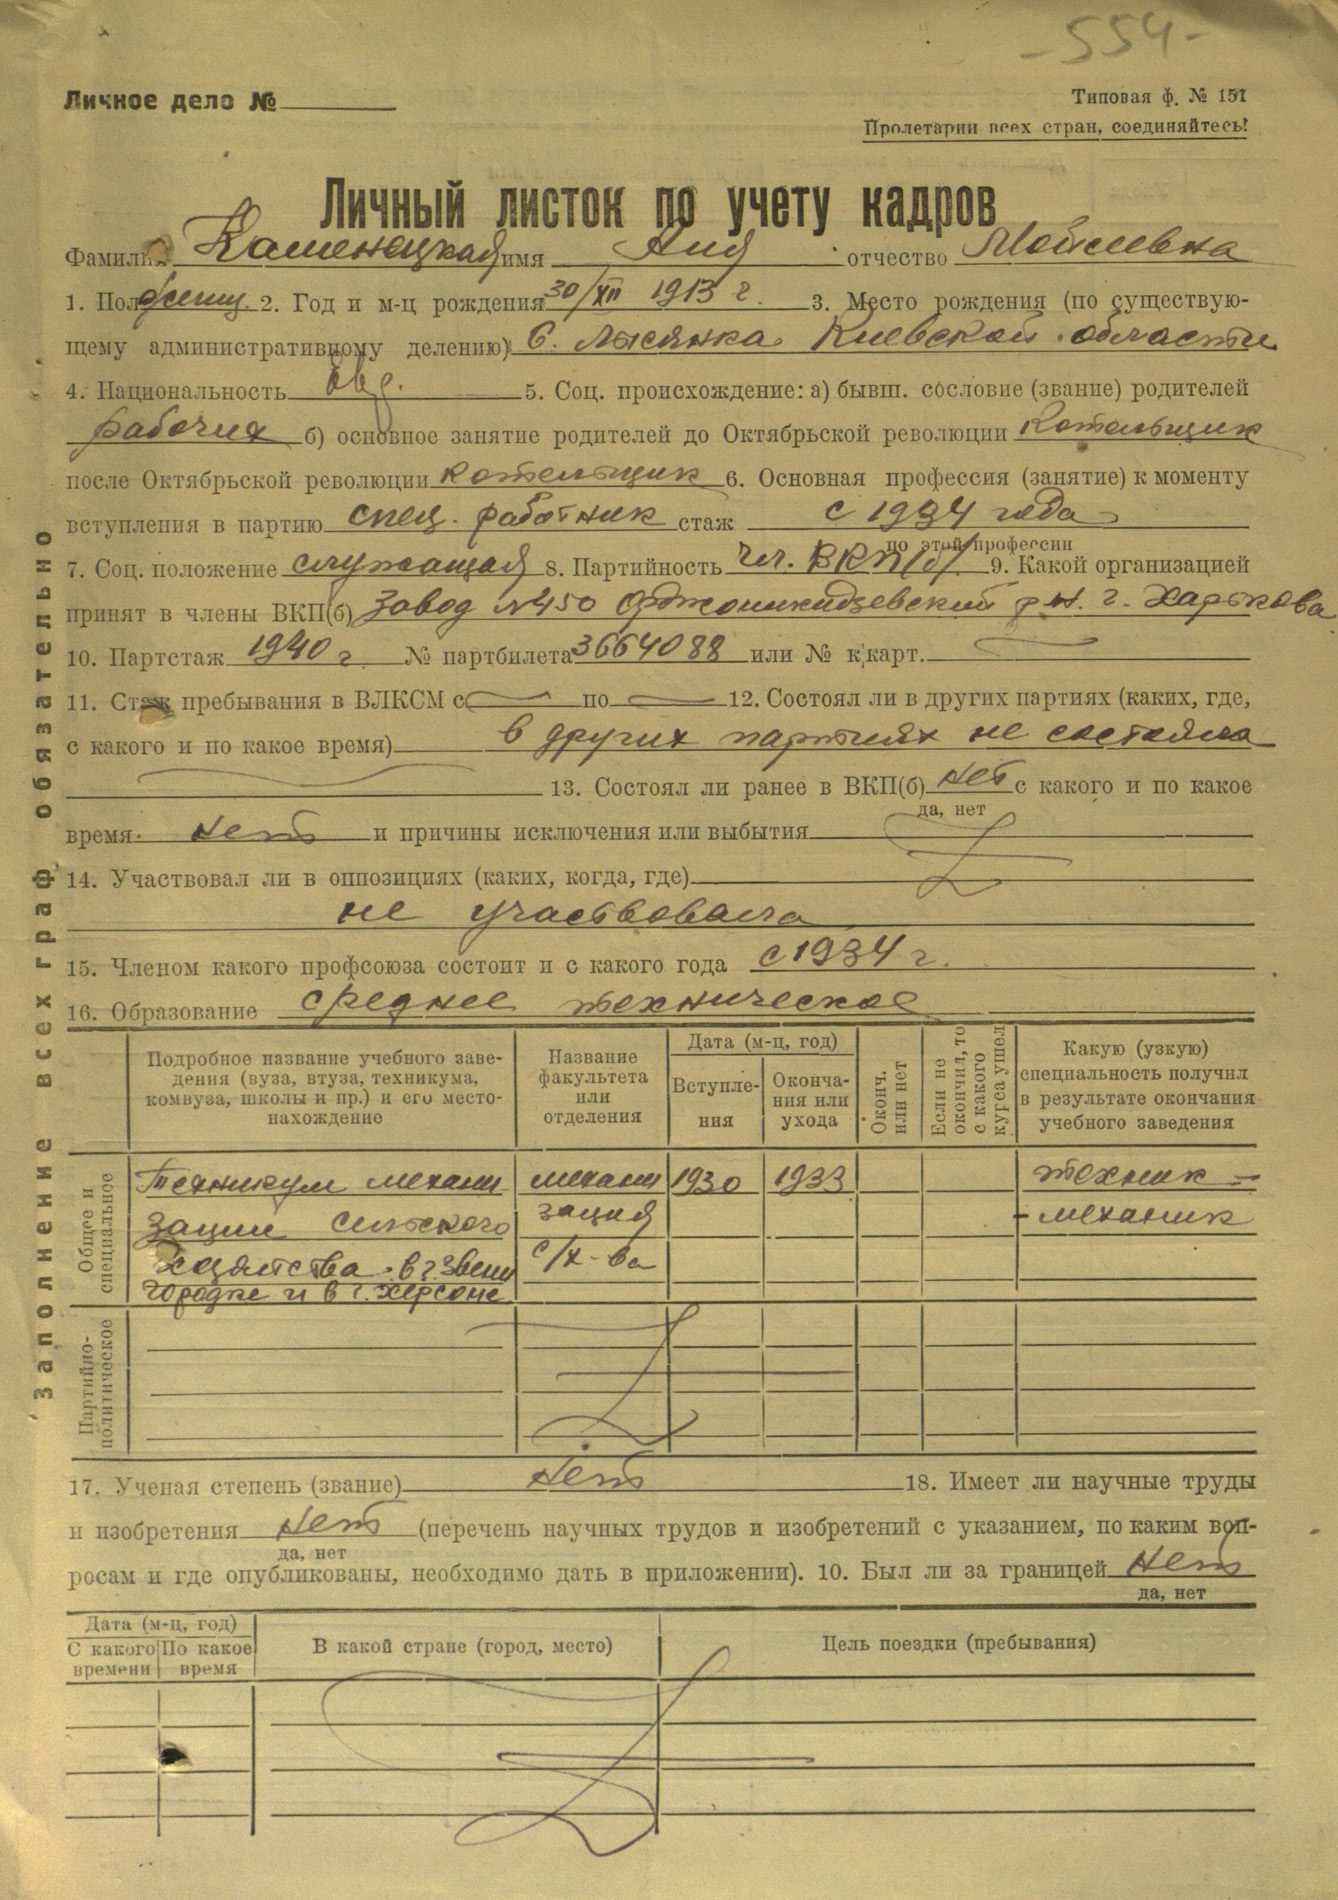 -554-
Личное дело №
Типовая ф. № 151
Пролетарии всех стран, соединяйтесь!
Личный листок по учету кадров
Фамилия Каменецкая имя Ания отчество Мойсеевна
1. Пол женщ. 2. Год и м-ц рождения 30/XII 1913 г. 3. Место рождения (по существую-
щему административному делению) с. Лысянка Киевской области
4. Национальность евр. 5. Соц. происхождение: а) бывш. сословие (звание) родителей
рабочих б) основное занятие родителей до Октябрьской революции Котельщик
после Октябрьской революции котельщик 6. Основная профессия (занятие) к моменту
вступления в партию спец. работник стаж с 1934 года
по этой профессии
7. Соц. положение служащая 8. Партийность чл. ВКП(б). 9. Какой организацией
принят в члены ВКП(б) Завод №450 Орджоникидзевский р-н. г. Харькова
10. Партстаж 1940 г. № партбилета 3664088 или № к/карт.
11. Стаж пребывания в ВЛКСМ с по 12. Состоял ли в других партиях (каких, где,
с какого и по какое время) в других партиях не состояла
13. Состоял ли ранее в ВКП(б) нет с какого и по какое
да, нет
время нет и причины исключения или выбытия
14. Участвовал ли в оппозициях (каких, когда, где)
не участвовала
15. Членом какого профсоюза состоит и с какого года с 1934 г.
16. Образование среднее техническое
Подробное название учебного заве-
дения (вуза, втуза, техникума,
комвуза, школы и пр.) и его место-
нахождение
Название
факультета
или
отделения
Дата (м-ц, год)
Вступле-
ния
Оконча-
ния или
ухода
Оконч.
или нет
Если не
окончил, то
с какого
курса ушел
Какую (узкую)
специальность получил
в результате окончания
учебного заведения
Общее и
специальное
Техникум механи механи 1930 1933 техник –
зации сельского зация – механик
хозяйства в г. Звени с/х-ва
городке и в г. Херсоне
Партийно-
политическое
17. Ученая степень (звание) нет 18. Имеет ли научные труды
и изобретения нет (перечень научных трудов и изобретений с указанием, по каким воп-
да, нет
росам и где опубликованы, необходимо дать в приложении). 10. Был ли за границей нет
да, нет
Дата (м-ц, год)
С какого
времени
По какое
время
В какой стране (город, место)
Цель поездки (пребывания)
Заполнение всех граф обязательно